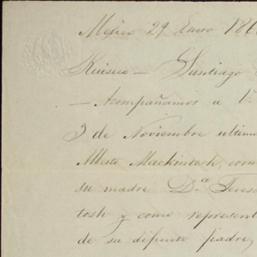 Méjico 29 Enero 186
Santiago
— Acompañamos a V.
3 de Noviembre ultimo
Alberto Mackintosh, com
su madre Dª Teres
tosh y como represent
de su difunto padre,